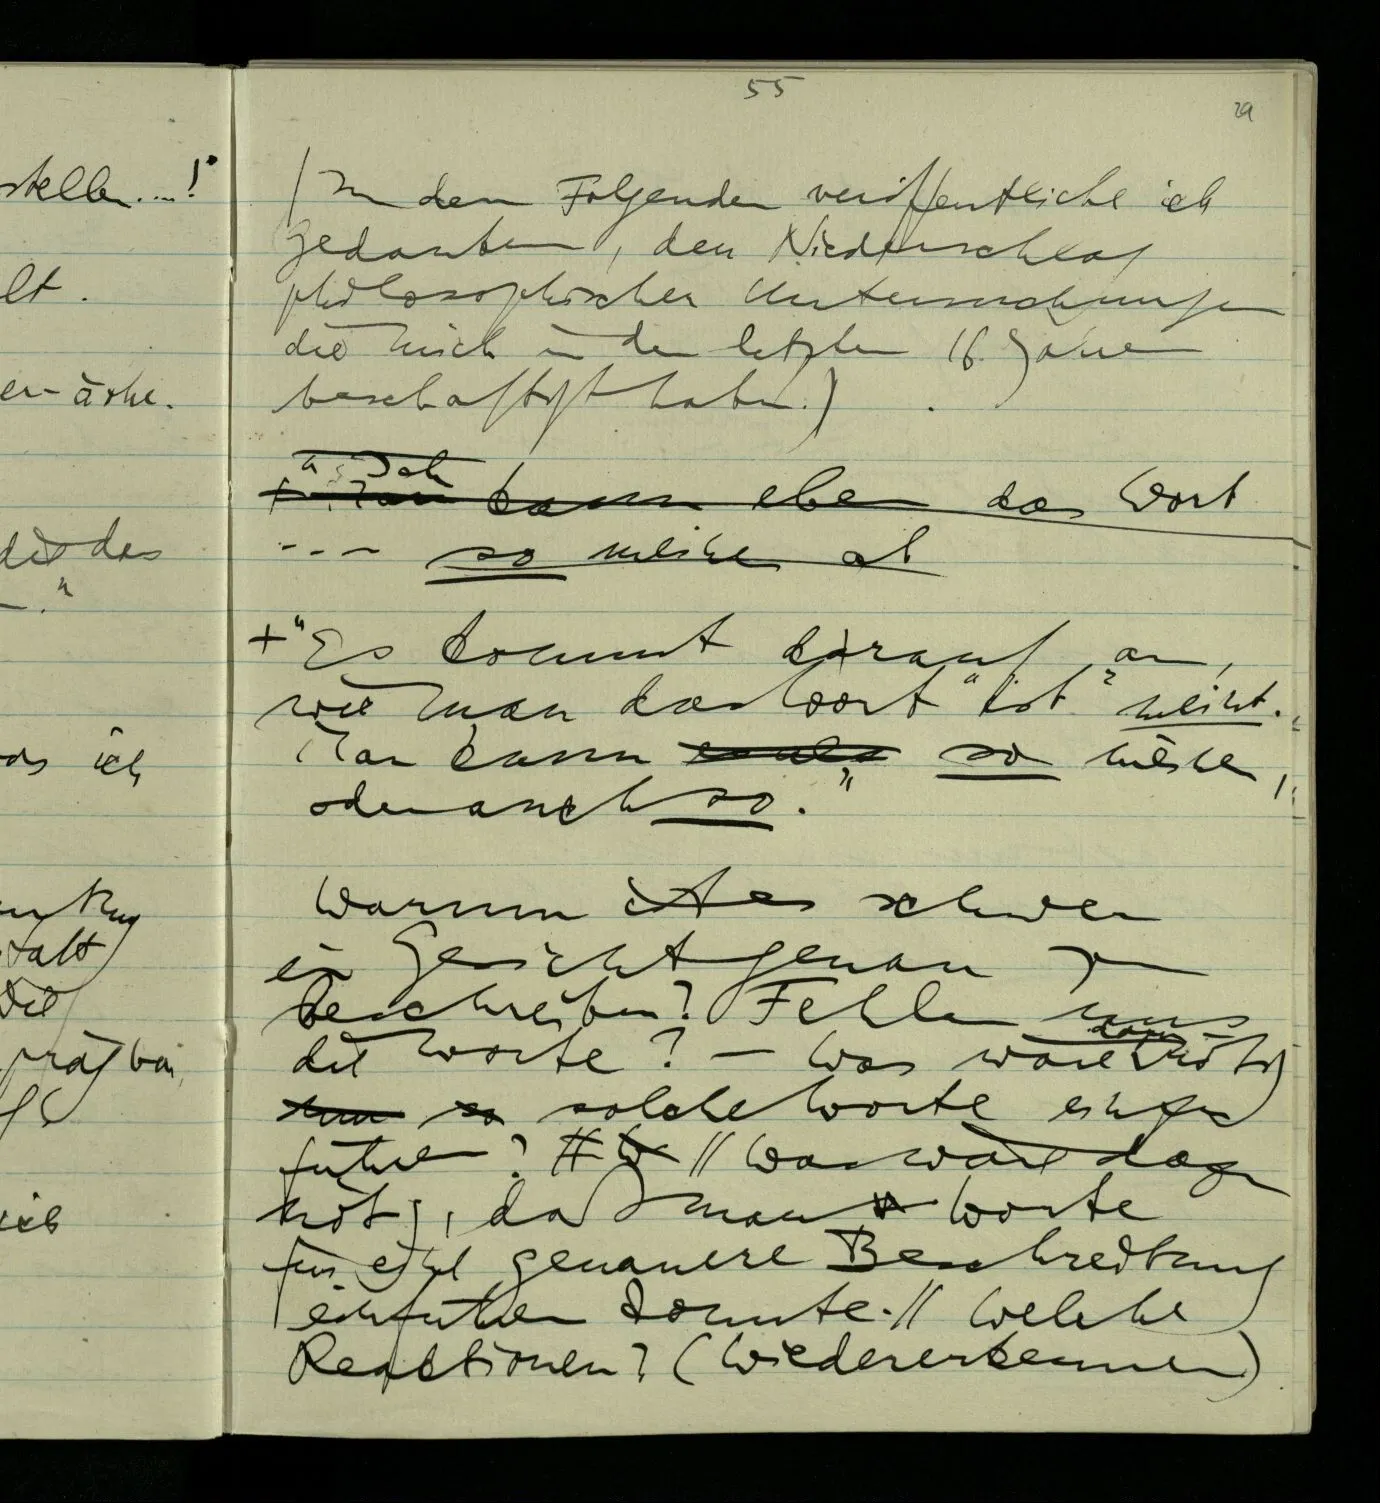 stellen....!"
lt.
er-ähn.
die das
—."
as ich
55
29
(In dem Folgenden veröffentliche ich
Gedanken, den Niederschlag
philosophischer Untersuchungen
die mich in den letzten 16 Jahren
beschäftigt haben.)
"Ich kann eben das Wort
--- so meinen als
+ "Es kommt darauf an,
wie man das Wort "ist" meint.
Man kann es als so meinen,
oder auch so."
Warum ist es schwer
ein Gesicht genau zu
beschreiben? Fehlen uns
die Worte? — Was wäre dazu nötig
um so solche Worte einzu
führen? // W // Was wäre dazu
nötig, daß man W Worte
für eine genauere Beschreibung
einführen könnte.// Welche
Reaktionen? (Wiedererkennen)